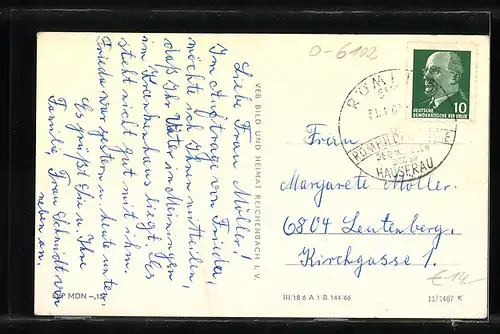 O-6102
Liebe Frau Müller!
Im Auftrage von Frieda,
möchte ich Ihnen mitteilen,
daß Ihr Vater in Meiningen
im Krankenhaus liegt. Es
steht nicht gut mit ihm.
Frieda war gestern u. heute unten.
Es grüßt Sie u. Ihre
Familie, Frau Schmidt von
neben an.
MDN –,15
VEB BILD UND HEIMAT REICHENBACH i. V.
III/18 6 A 1 B 144 66
RÖMHILD
HAUSFRAU
10
DEUTSCHE
DEMOKRATISCHE REPUBLIK
Frau
Margarete Müller
6804 Leutenberg.
Kirchgasse 1.
€ 14
11/1487 K